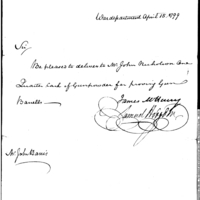 War department April 18. 1799
Sir
Be pleased to deliver to Mr John Nicholson One
Quarter Cask of Gunpowder for proving Gun
Barrells
James McHenry
Samuel Hodgdon
Mr John Harris